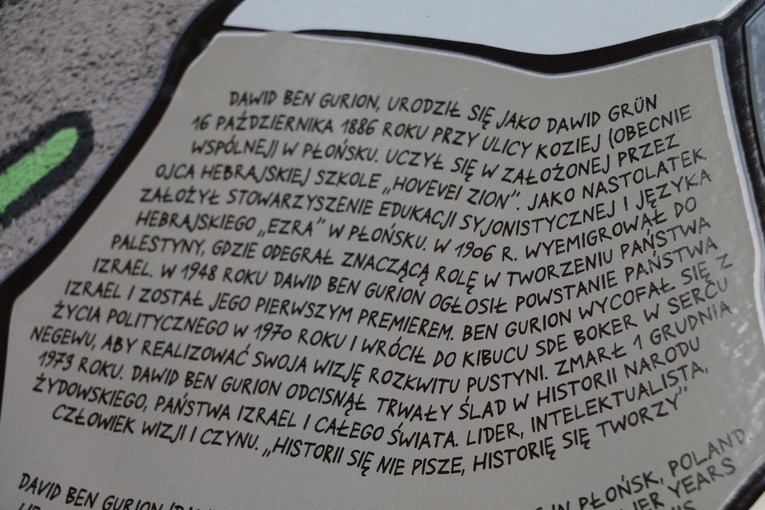 DAWID BEN GURION, URODZIŁ SIĘ JAKO DAWID GRÜN
16 PAŹDZIERNIKA 1886 ROKU PRZY ULICY KOZIEJ (OBECNIE
WSPÓLNEJ) W PŁOŃSKU. UCZYŁ SIĘ W ZAŁOŻONEJ PRZEZ
OJCA HEBRAJSKIEJ SZKOLE „HOVEVEI ZION”. JAKO NASTOLATEK
ZAŁOŻYŁ STOWARZYSZENIE EDUKACJI SYJONISTYCZNEJ I JĘZYKA
HEBRAJSKIEGO „EZRA” W PŁOŃSKU. W 1906 R. WYEMIGROWAŁ DO
PALESTYNY, GDZIE ODEGRAŁ ZNACZĄCĄ ROLĘ W TWORZENIU PAŃSTWA
IZRAEL. W 1948 ROKU DAWID BEN GURION OGŁOSIŁ POWSTANIE PAŃSTWA
IZRAEL I ZOSTAŁ JEGO PIERWSZYM PREMIEREM. BEN GURION WYCOFAŁ SIĘ Z
ŻYCIA POLITYCZNEGO W 1970 ROKU I WRÓCIŁ DO KIBUCU SDE BOKER W SERCU
NEGEWU, ABY REALIZOWAĆ SWOJA WIZJĘ ROZKWITU PUSTYNI. ZMARŁ 1 GRUDNIA
1973 ROKU. DAWID BEN GURION ODCISNĄŁ TRWAŁY ŚLAD W HISTORII NARODU
ŻYDOWSKIEGO, PAŃSTWA IZRAEL I CAŁEGO ŚWIATA. LIDER, INTELEKTUALISTA,
CZŁOWIEK WIZJI I CZYNU. „HISTORII SIĘ NIE PISZE, HISTORIĘ SIĘ TWORZY”
DAVID BEN GURION IN PŁOŃSK, POLAND
YEARS